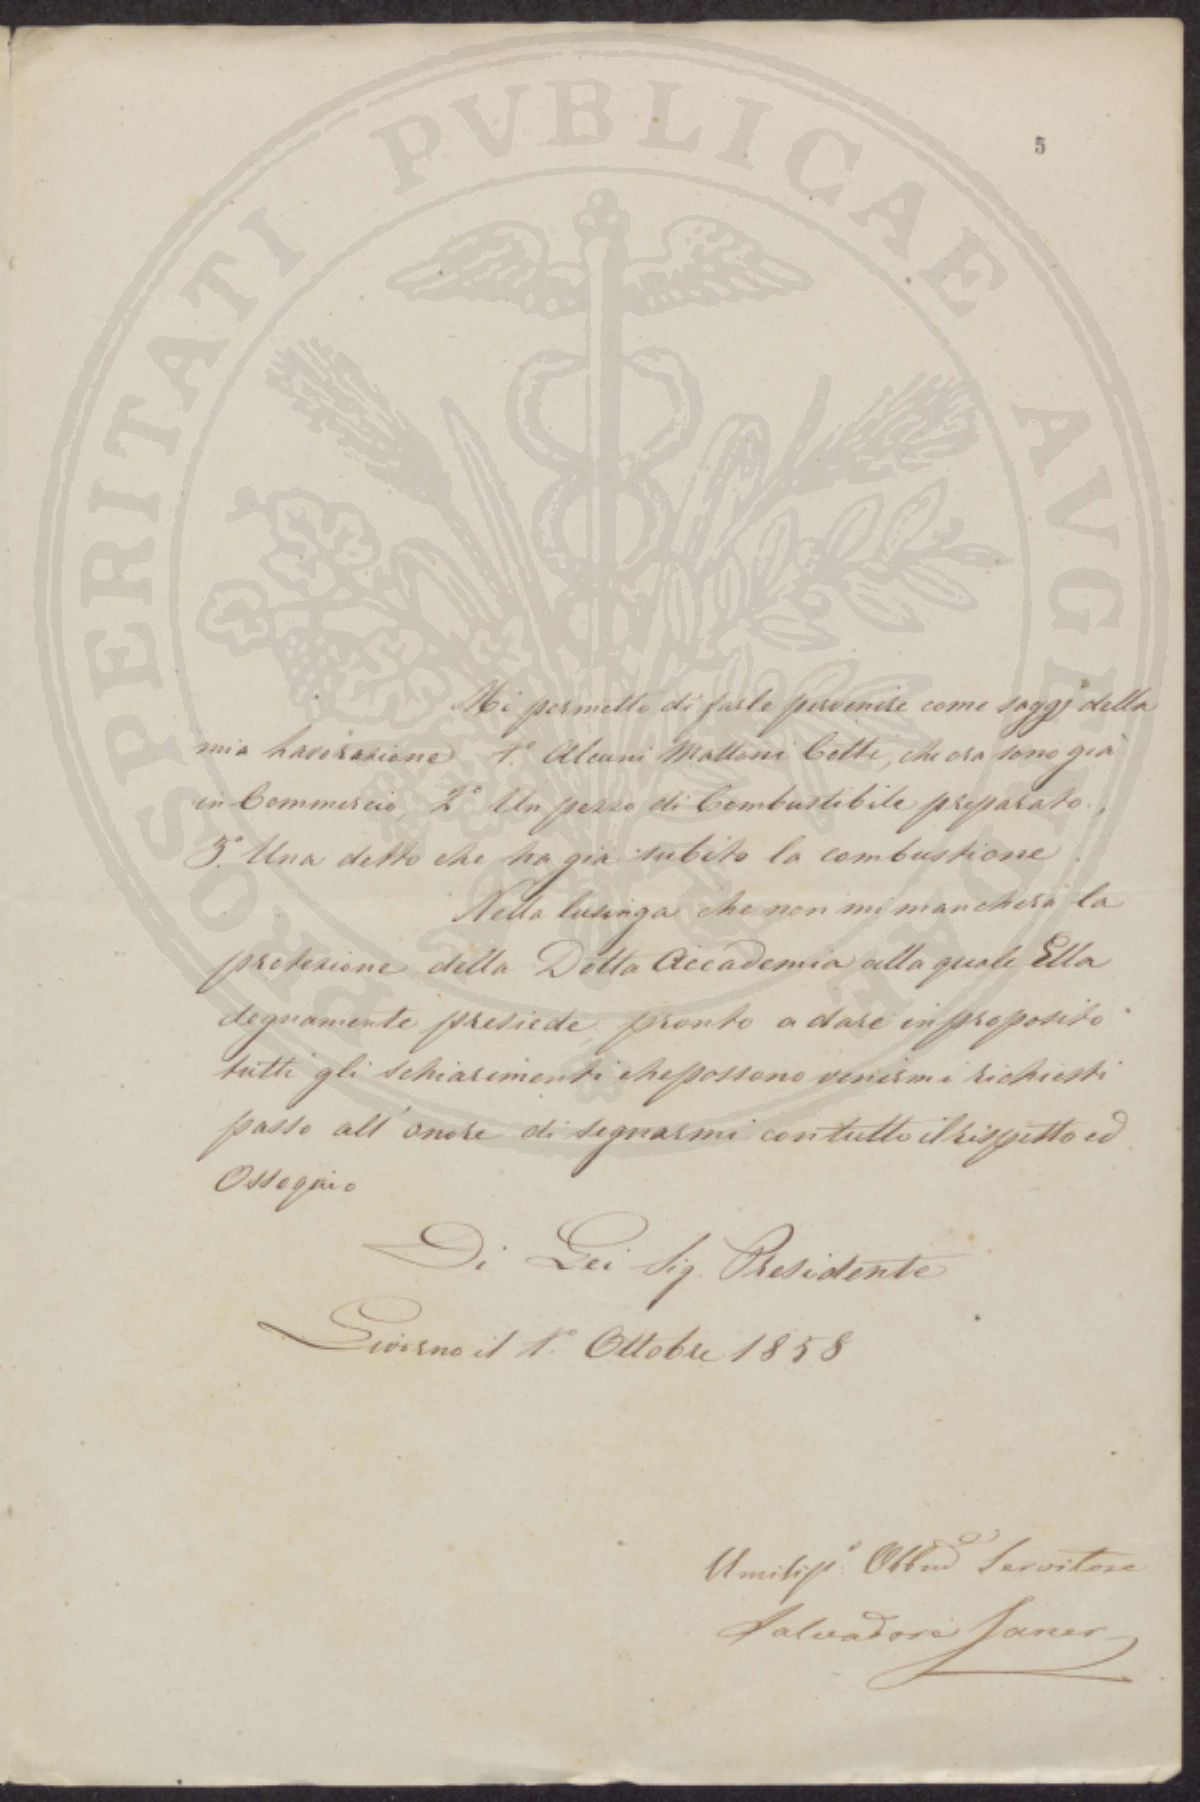 PROSPERITATI PVBLICAE AVGENDAE
5
Mi permetto di farle pervenire come saggj della
mia Lavorazione 1.° Alcuni Mattoni Cotti, che ora sono già
in Commercio, 2° Un pezzo di Combustibile preparato,
3.° Una detto che ha già subito la combustione
Nella lusinga che non mi mancherà la
protezione della Dotta Accademia alla quale Ella
degnamente presiede, pronto a dare in proposito
tutti gli schiarimenti che possono venirmi richiesti
passo all'onore di segnarmi con tutto il rispetto ed
Ossequio
Di Lei Sig. Presidente
Livorno il 1.° Ottobre 1858
Umilis.° Obbmo Servitore
Salvadore Janer